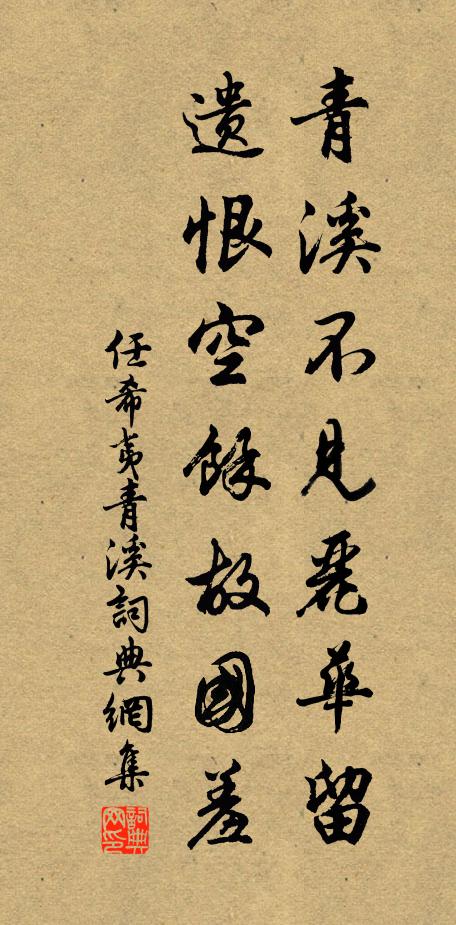 青溪不見麗華留
遺恨空餘故國羞
任希夷青溪詞典網集
詞典网印